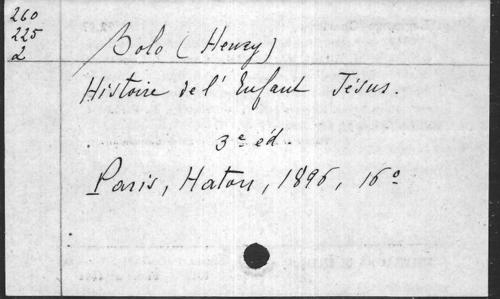 260
225
2
Bolo (Henry)
Histoire de l'Enfant Jésus.
3e éd.
Paris, Haton, 1896, 16°